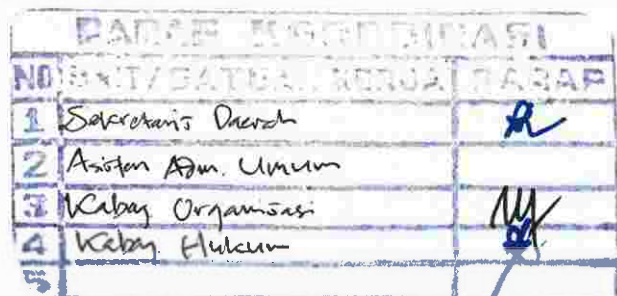 PARAF KOORDINASI
NO UNIT/SATUAN KERJA PARAF
1 Sekretaris Daerah
2 Asisten Adm. Umum
3 Kabag Organisasi
4 Kabag Hukum
5